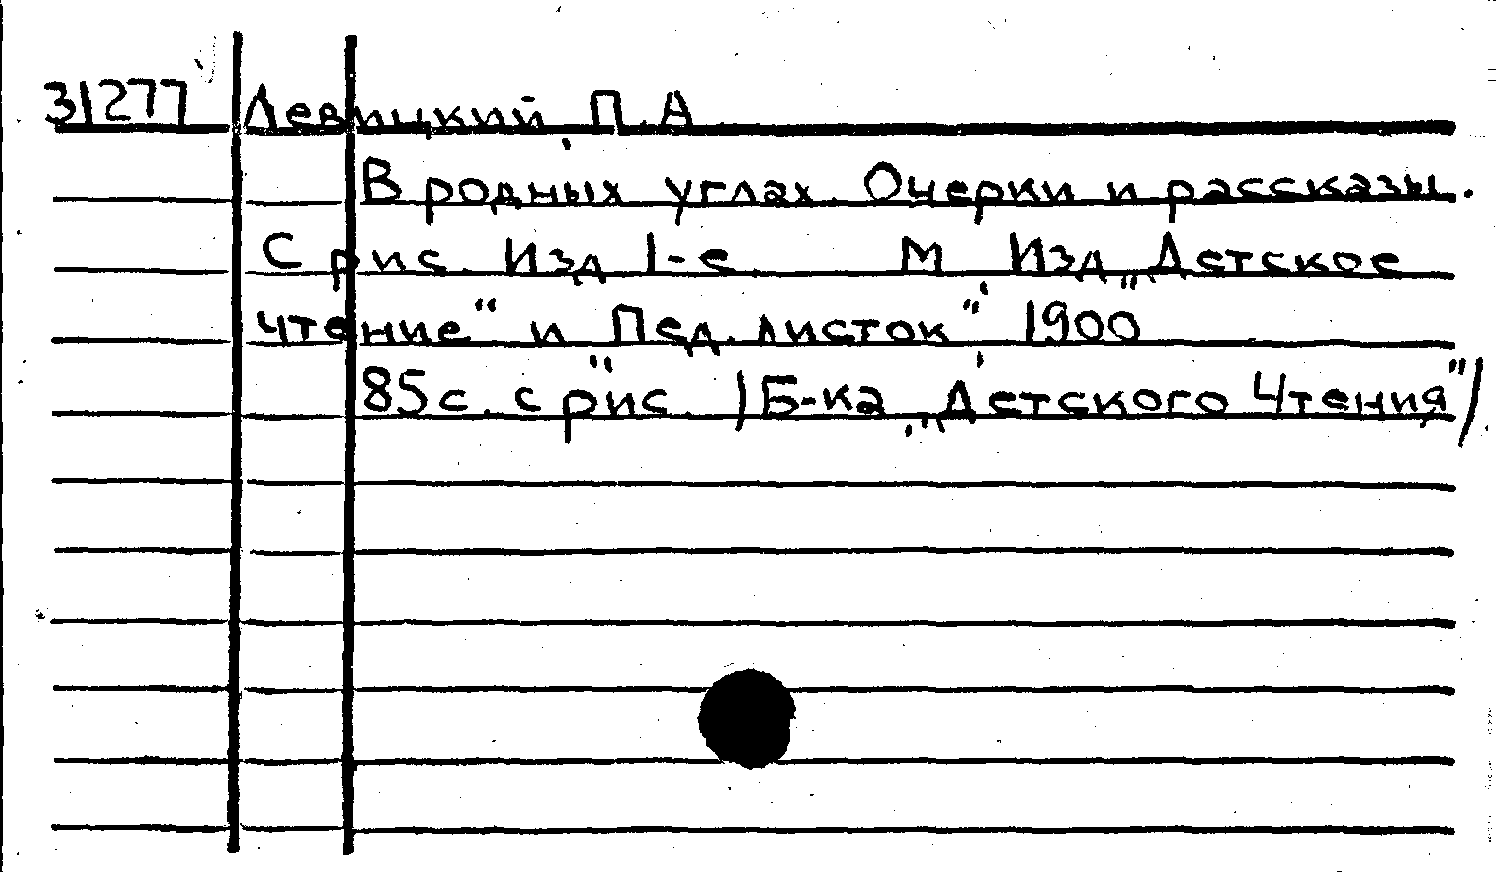 31277 Левицкий, П.А.
В родных углах. Очерки и рассказы.
С рис. Изд 1-е. М. Изд. „Детское
чтение" и „Пед. листок", 1900
85с. с рис. /Б-ка „Детского Чтения"/